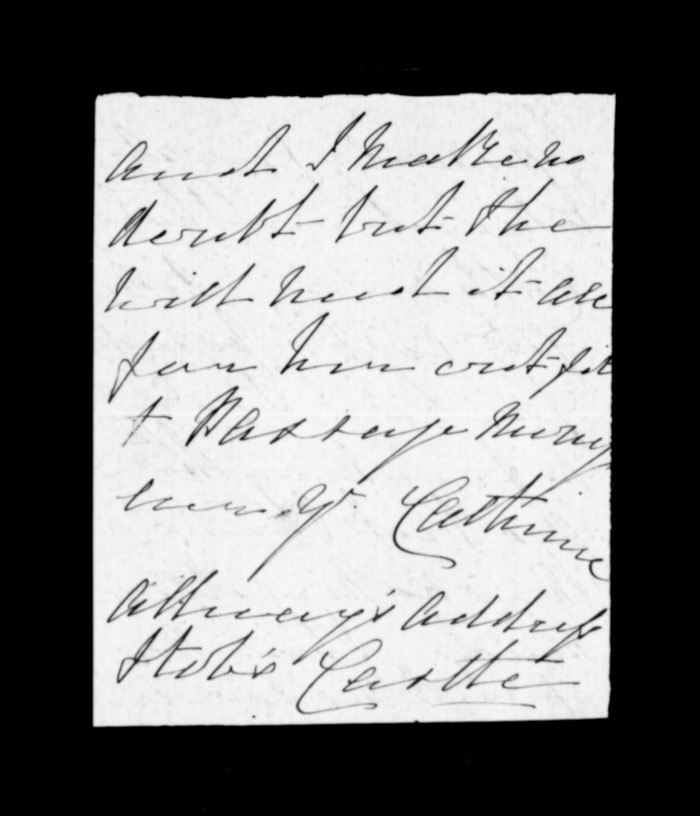 and I make no
doubt but the
will need it all
for her outfit
+ Passage Money
ever yr. Catherine
Attorney's address
Stob's Castle